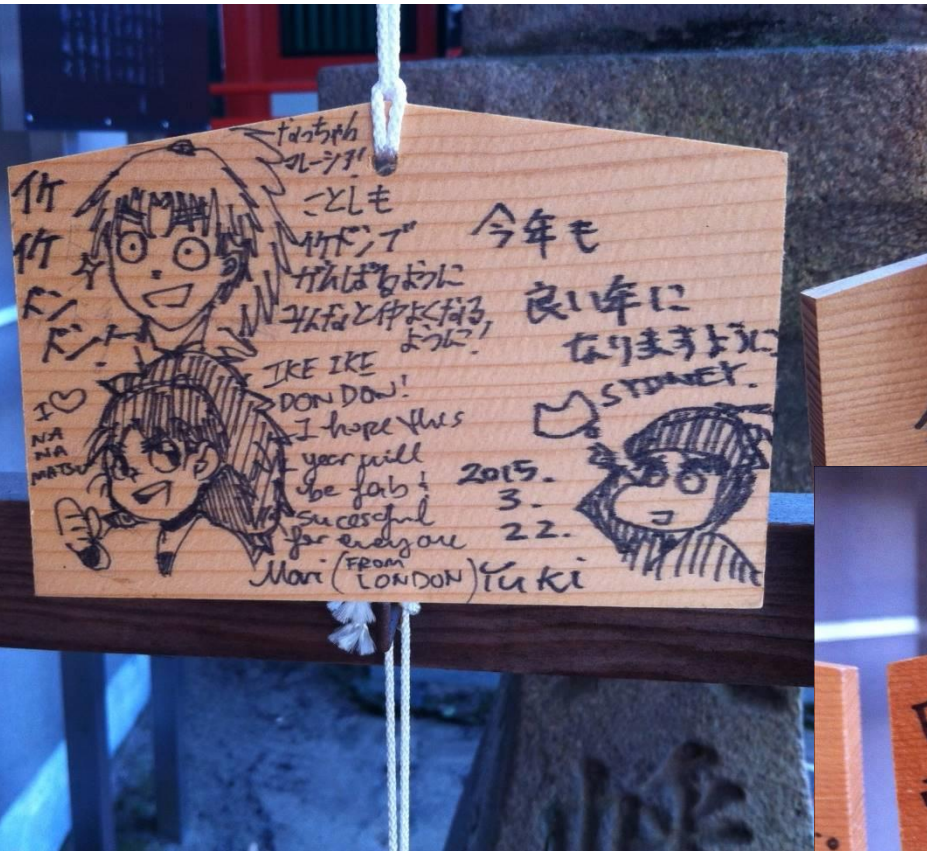 イケ
イケ
ドン
ドンー!
なっちゃん
マレーシア!
ことしも
イケドンブ
がんばるように
みんなと仲よくなる
ように!
IKE IKE
DON DON!
I hope this
year will
be fab!
sucessful
for everyone
Mari (FROM LONDON)
I♡
NA
NA
MATSU
今年も
良い年に
なりますように
SYDNEY.
2015.
3.
22.
Yuki